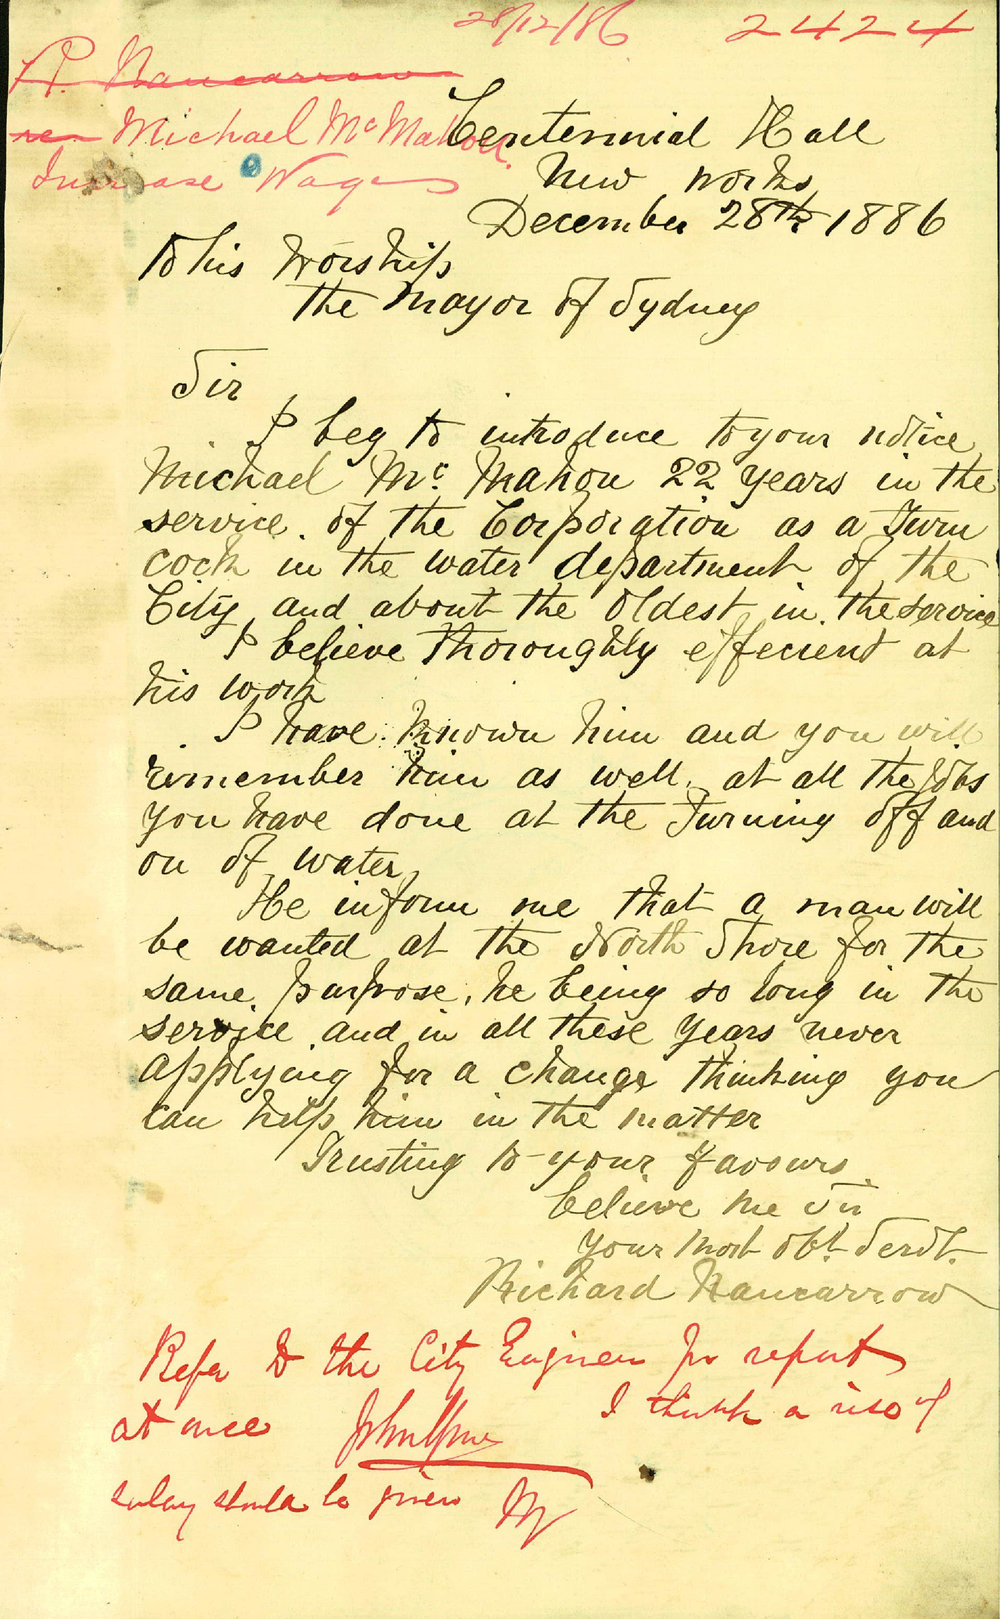 28/12/86 2424
R. Nancarrow
re Michael McMahon
Increase Wages
Centennial Hall
New works
December 28th 1886
To his Worship
The Mayor of Sydney
Sir
I beg to introduce to your notice
Michael Mc Mahon 22 years in the
service of the Corporation as a Turn
cock in the water department of the
City and about the oldest in the service
I believe thoroughly effecient at
his work
I have known him and you will
remember him as well at all the Jobs
you have done at the Turning off and
on of water
He inform me that a man will
be wanted at the North Shore for the
same purpose, he being so long in the
service and in all these years never
applying for a change thinking you
can help him in the matter
Trusting to your favours
believe me Sir
your most obt. Servt.
Richard Nancarrow
Refer to the City Engineer for report
at once I think a rise of
salary should be given